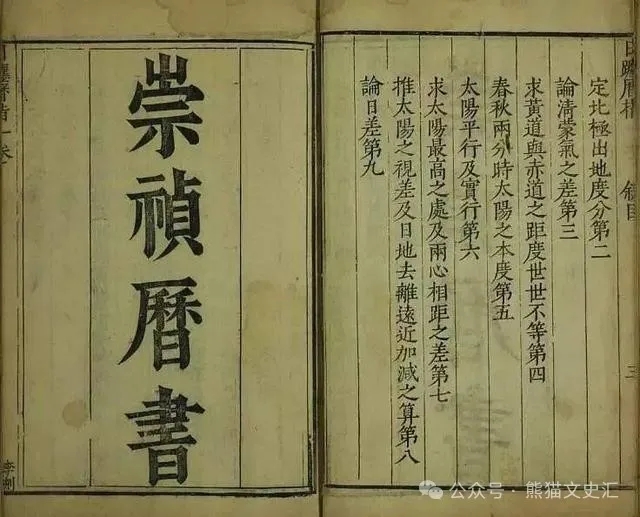 日躔曆指
三
定北極出地度分第二
論清蒙氣之差第三
求黃道與赤道之距度世世不等第四
春秋兩分時太陽之本度第五
太陽平行及實行第六
求太陽最高之處及兩心相距之差第七
推太陽之視差及日地去離遠近加減之算第八
論日差第九
崇禎曆書
公众号 · 熊猫文史汇